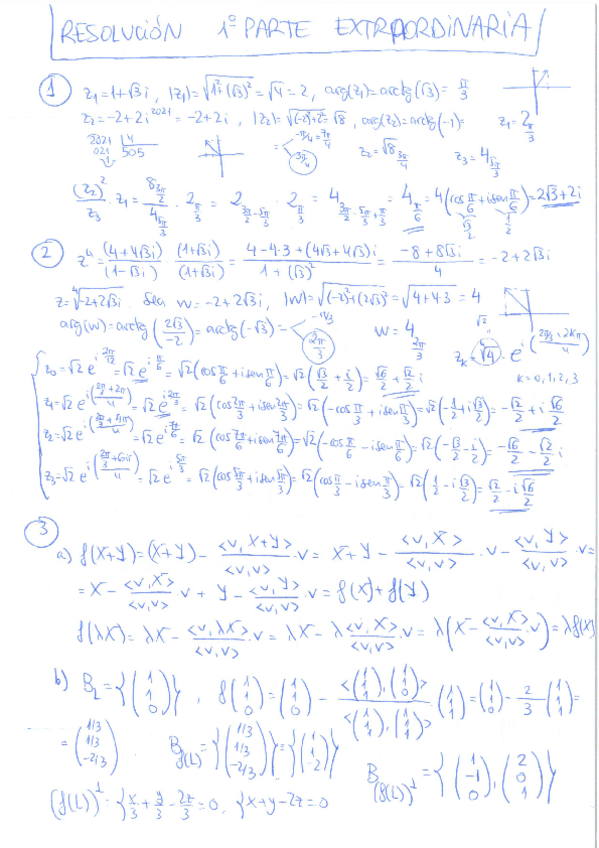 RESOLUCIÓN 1ª PARTE EXTRAORDINARIA
1 z₁=1+√3i, |z₁|=√(1²+(√3)²)=√4=2, arg(z₁)=arctg(√3)=π/3
z₂=-2+2i²⁰²¹=-2+2i, |z₂|=√((-2)²+2²)=√8, arg(z₂)=arctg(-1)= -π/4=7π/4 3π/4
z₁=2_{π/3}
2021 |4
021 505
1
z₂=√8_{3π/4} z₃=4_{5π/3}
(z₂)²/z₃ · z₁ = 8_{3π/2}/4_{5π/3} · 2_{π/3} = 2_{3π/2-5π/3} · 2_{π/3} = 4_{3π/2-5π/3+π/3} = 4_{π/6} = 4(cos π/6 + i sen π/6) = 2√3+2i
√3/2 1/2
2 z⁴=(4+4√3i)/(1-√3i) · (1+√3i)/(1+√3i) = (4-4·3+(4√3+4√3)i)/(1+(√3)²) = (-8+8√3i)/4 = -2+2√3i
z=⁴√(-2+2√3i). Sea w=-2+2√3i, |w|=√((-2)²+(2√3)²)=√(4+4·3)=4
arg(w)=arctg(2√3/-2)=arctg(-√3)= -π/3 2π/3 w=4_{2π/3} z_k=⁴√4 · e^{i((2π/3+2kπ)/4)}
√2
z₀=√2 e^{i 2π/12}=√2 e^{i π/6}=√2(cos π/6+i sen π/6)=√2(√3/2+i/2)=√6/2+√2/2 i k=0,1,2,3
z₁=√2 e^{i((2π/3+2π)/4)}=√2 e^{i 2π/3}=√2(cos 2π/3+i sen 2π/3)=√2(-cos π/3+i sen π/3)=√2(-1/2+i√3/2)=-√2/2+i√6/2
z₂=√2 e^{i((2π/3+4π)/4)}=√2 e^{i 7π/6}=√2(cos 7π/6+i sen 7π/6)=√2(-cos π/6-i sen π/6)=√2(-√3/2-i/2)=-√6/2-√2/2 i
z₃=√2 e^{i((2π/3+6π)/4)}=√2 e^{i 5π/3}=√2(cos 5π/3+i sen 5π/3)=√2(cos π/3-i sen π/3)-√2(1/2-i√3/2)=√2/2-i√6/2
3
a) f(X+Y)=(X+Y)-<v,X+Y>/<v,v>·v=X+Y-<v,X>/<v,v>·v-<v,Y>/<v,v>·v=
=X-<v,X>/<v,v>·v+Y-<v,Y>/<v,v>·v=f(X)+f(Y)
f(λX)=λX-<v,λX>/<v,v>·v=λX-λ<v,X>/<v,v>·v=λ(X-<v,X>/<v,v>·v)=λf(X)
b) B_L={(1 1 0)}, f(1 1 0)=(1 1 0)-<(1 1 1),(1 1 0)>/<(1 1 1),(1 1 1)>·(1 1 1)=(1 1 0)-2/3(1 1 1)=
=(1/3 1/3 -2/3) B_{f(L)}={(1/3 1/3 -2/3)}={(1 1 -2)} B_{(f(L))^⊥}={(1 -1 0),(2 0 1)}
(f(L))^⊥={x/3+y/3-2z/3=0, {x+y-2z=0